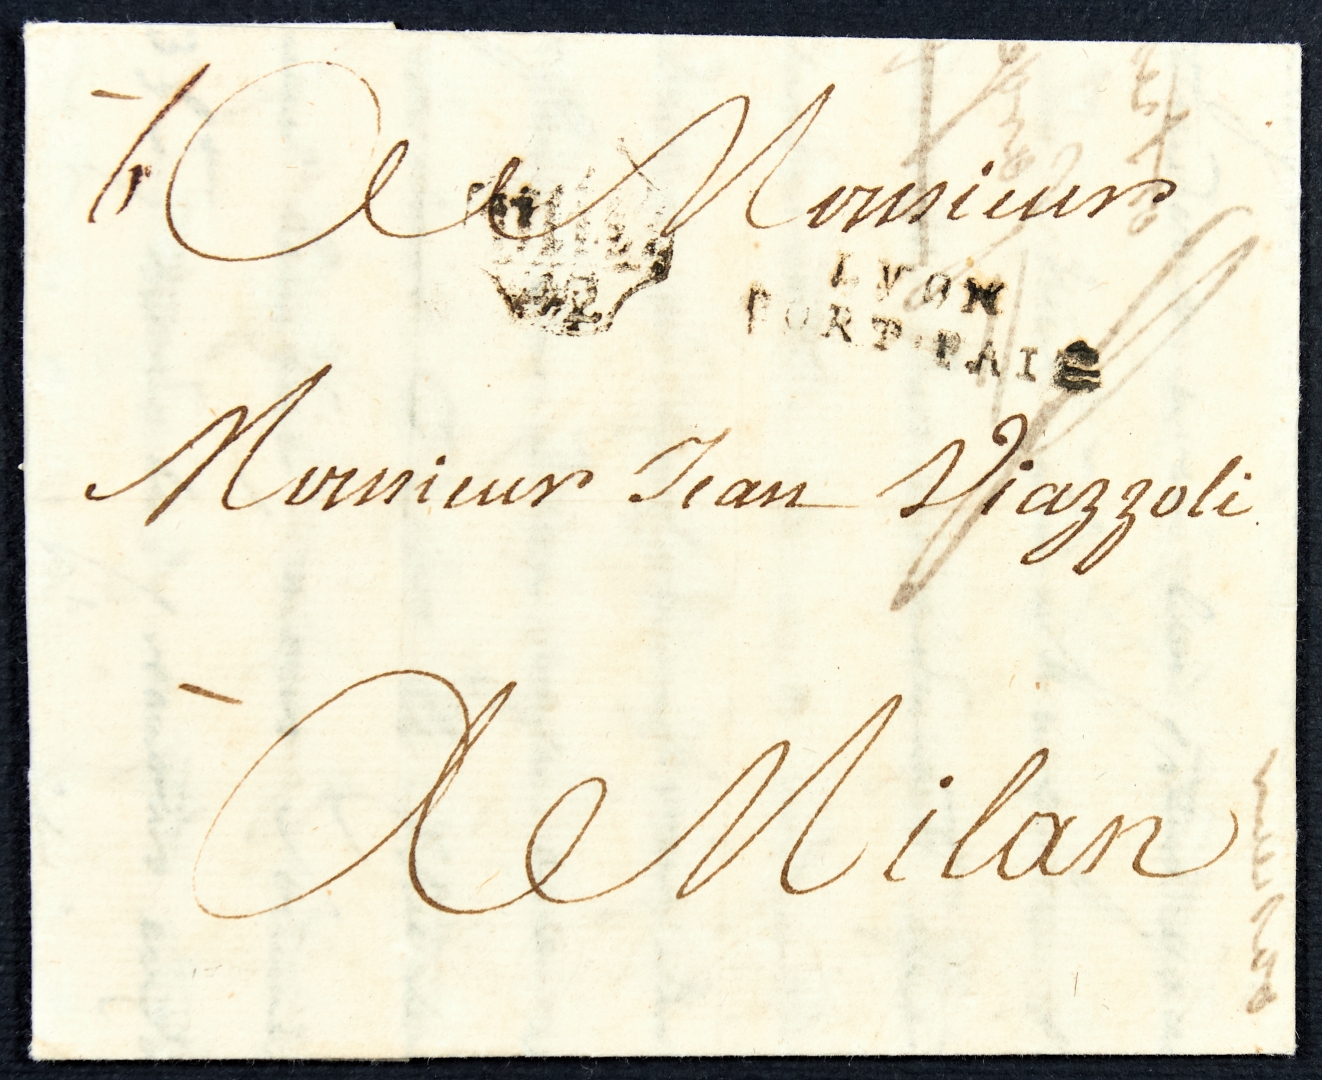 À Monsieur
LYON
PORT·PAIÉ
Monsieur Jean Viazzoli
À Milan